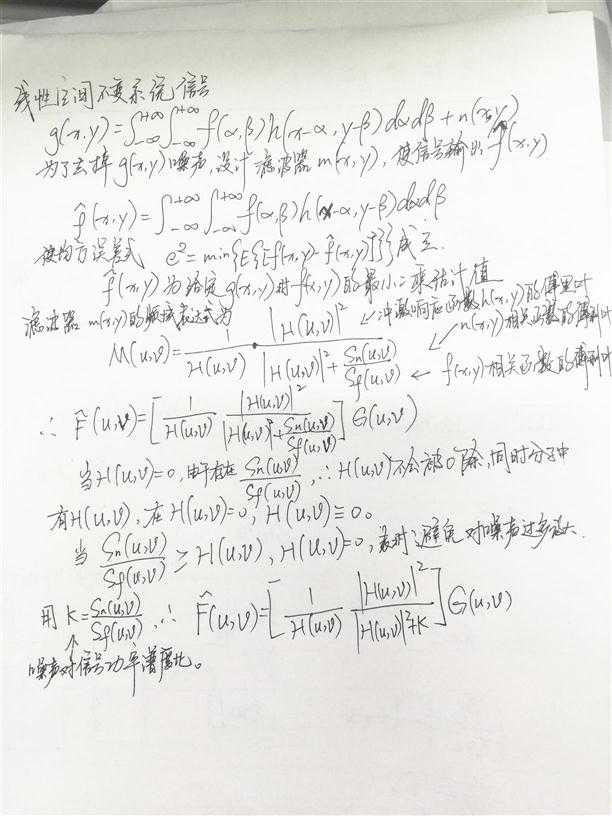 线性空间不变系统信号
g(x,y)=∫_{-∞}^{+∞}∫_{-∞}^{+∞}f(α,β)h(x-α,y-β)dαdβ+n(x,y)
为了去掉g(x,y)噪声,设计滤波器m(x,y),使信号输出f̂(x,y)
f̂(x,y)=∫_{-∞}^{+∞}∫_{-∞}^{+∞}f(α,β)h(x-α,y-β)dαdβ
使均方误差式 e²=min{E{[f(x,y)-f̂(x,y)]²}}成立.
f̂(x,y)为给定g(x,y)时f(x,y)的最小二乘估计值
滤波器m(x,y)的频域表达式为
←冲激响应函数h(x,y)的傅里叶
M(u,v)=1/H(u,v)·|H(u,v)|²/(|H(u,v)|²+Sn(u,v)/Sf(u,v))
←n(x,y)相关函数的傅利叶
←f(x,y)相关函数的傅利叶
∴F̂(u,v)=[1/H(u,v) |H(u,v)|²/(|H(u,v)|²+Sn(u,v)/Sf(u,v))]G(u,v)
当H(u,v)=0,由于存在Sn(u,v)/Sf(u,v),∴H(u,v)不会被0除,同时分子中
有H(u,v),在H(u,v)=0,H(u,v)≡0。
当Sn(u,v)/Sf(u,v)≥H(u,v),H(u,v)=0,避免对噪声过多放大.
用K=Sn(u,v)/Sf(u,v),∴F̂(u,v)=[1/H(u,v) |H(u,v)|²/(|H(u,v)|²+K)]G(u,v)
↑
噪声对信号功率谱密比。